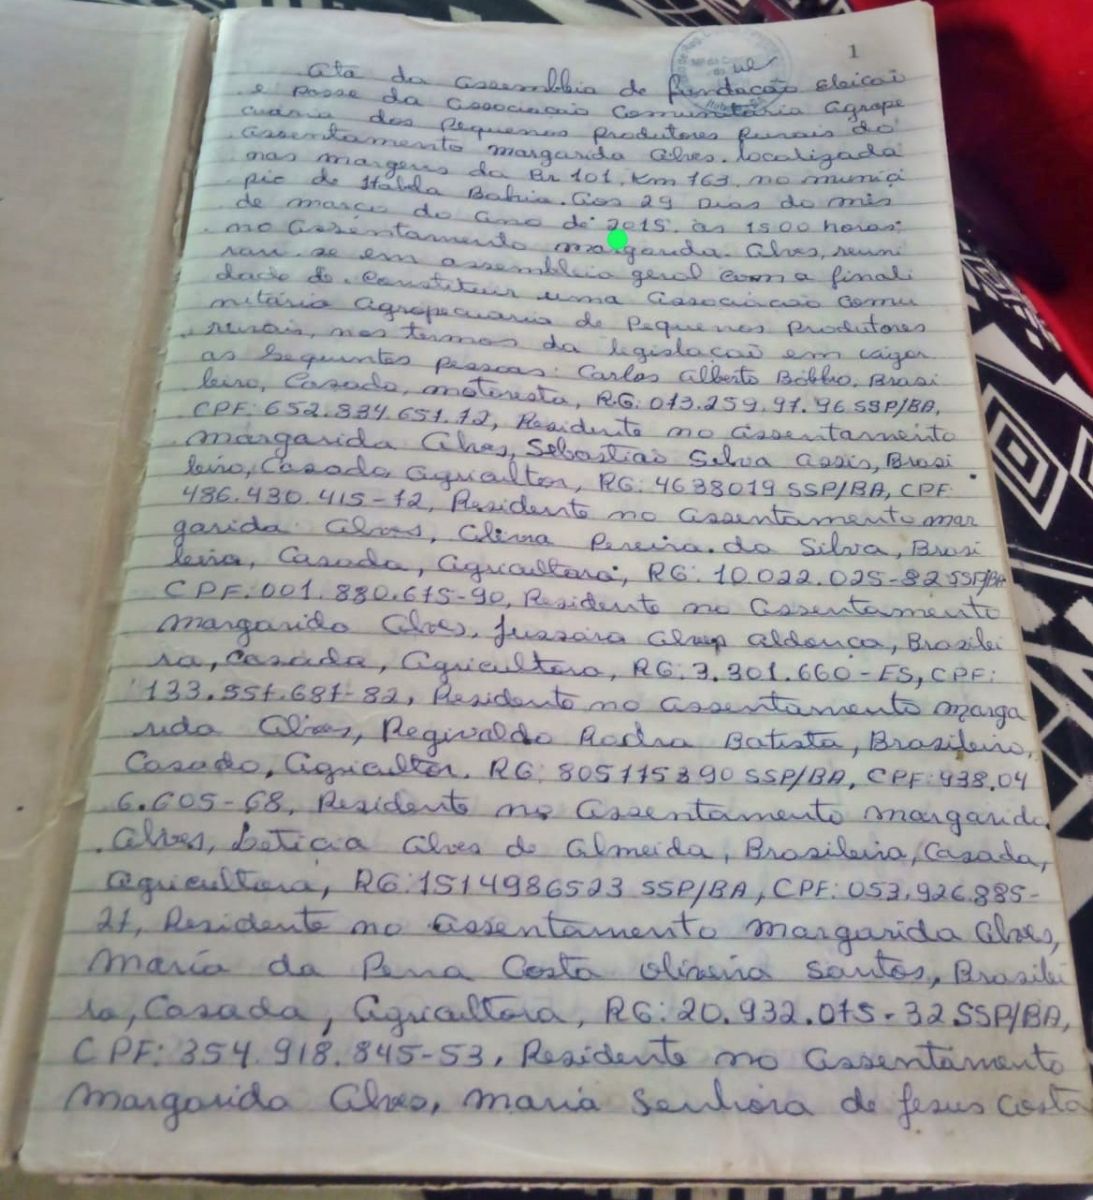 1
Ata da assembléia de fundação eleicaõ
e posse da associacao Comunitária Agrope
cuária dos Pequenos Produtores Rurais do
Assentamento margarida Alves. localizada
nas margens da Br 101, Km 163, no municí
pio de Itabela Bahia. Aos 29 Dias do mês
de março do ano de 2015. às 1500 horas;
no Assentamento margarida. Alves, reuni
ran-se em assembleia geral com a finali
dade de. constituir uma associacao comu
nitária Agropecuaria de Pequenos Produtores
rurais, nos termos da legislacaõ em vigor
as seguintes pessoas: Carlos Alberto Bobbio, Brasi
leiro, Casado, motorista, RG: 013.259.97.96 SSP/BA,
CPF: 652.834.651.72, Residente no assentamento
margarida Alves, Sebastiaõ Silva Assis, Brasi
leiro, Casado, Agricultor, RG: 4638019 SSP/BA, CPF
486.430.415-72, Residente no assentamento mar
garida Alves, Pereira da Silva, Brasi
leira, Casada, Agricultora, RG: 10.022.025-82 SSP/BA
CPF: 001.880.675-90, Residente no assentamento
margarida Alves, Jussára Brasilei
ra, casada, agricultora, RG: 3.301.660-ES, CPF:
133.551.687-82, Residente no assentamento marga
rida Alves, Regivaldo Batista, Brasileiro,
Casado, Agricultor, RG: 805175390 SSP/BA, CPF: 938.04
6.605-68, Residente no assentamento margarida
Alves, Leticia Alves de Almeida, Brasileira, Casada,
agricultora, RG: 1514986523 SSP/BA, CPF: 053.926.885-
27, Residente no assentamento margarida Alves,
maria da Pena Costa Oliveira Santos, Brasilei
ra, Casada, Agricultora, RG: 20.932.075-32 SSP/BA,
CPF: 354.918.845-53, Residente no assentamento
margarida Alves, maria Senhora de Jesus Costa